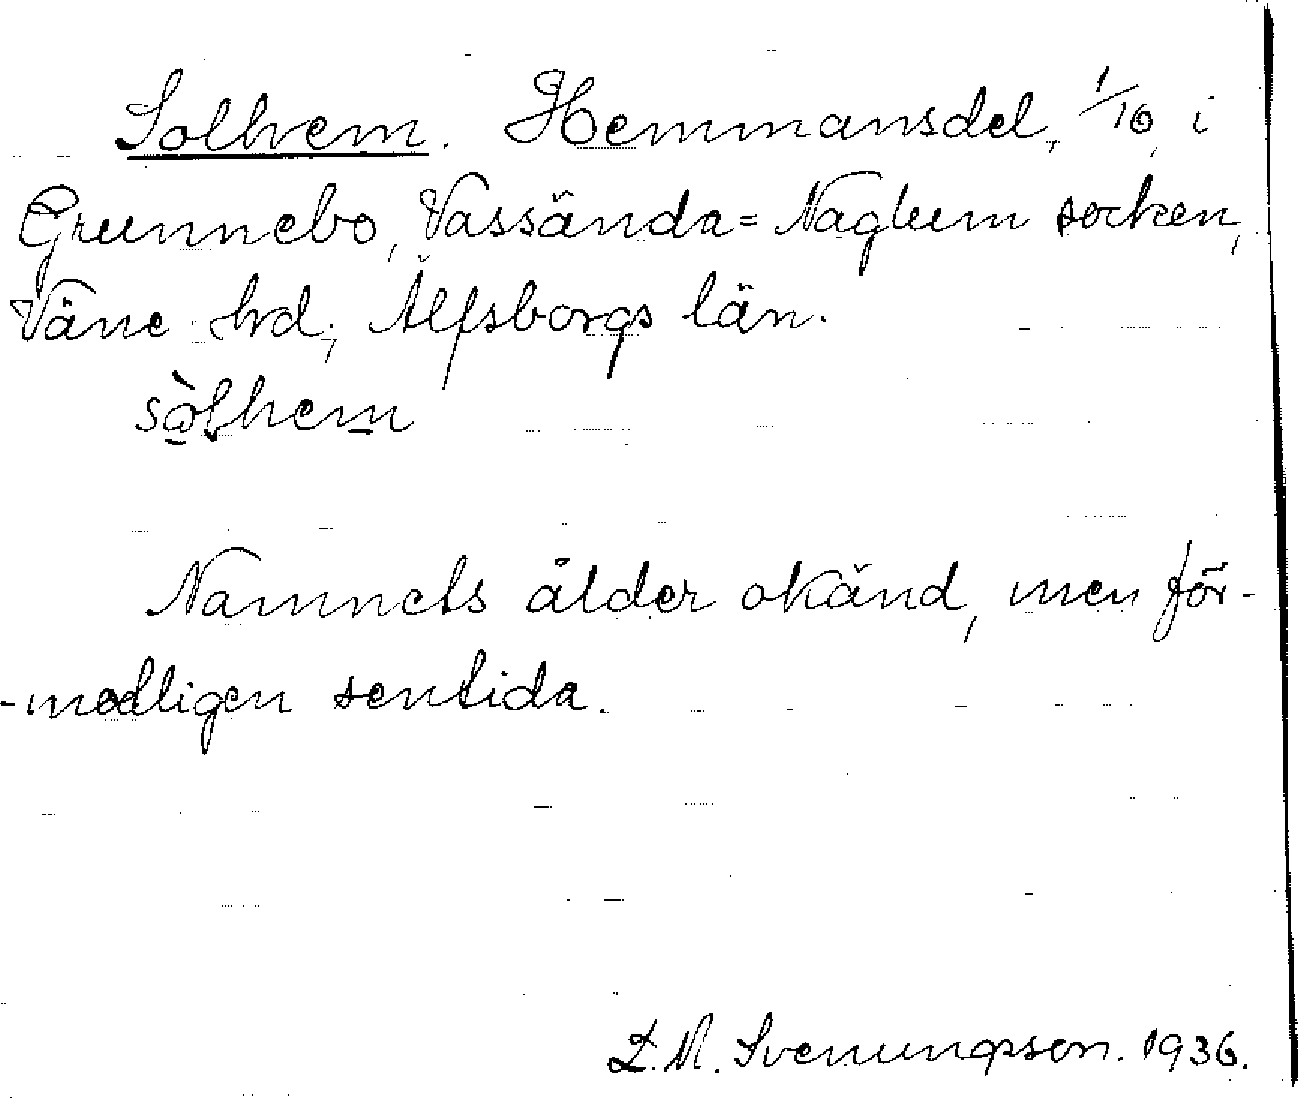 Solhem. Hemmansdel, 1/16, i
Grunnebo, Vassända=Naglum socken,
Väne hrd, Älfsborgs län.
Namnets ålder okänd, men för-
-modligen sentida.
L. M. Svenungsson. 1936.